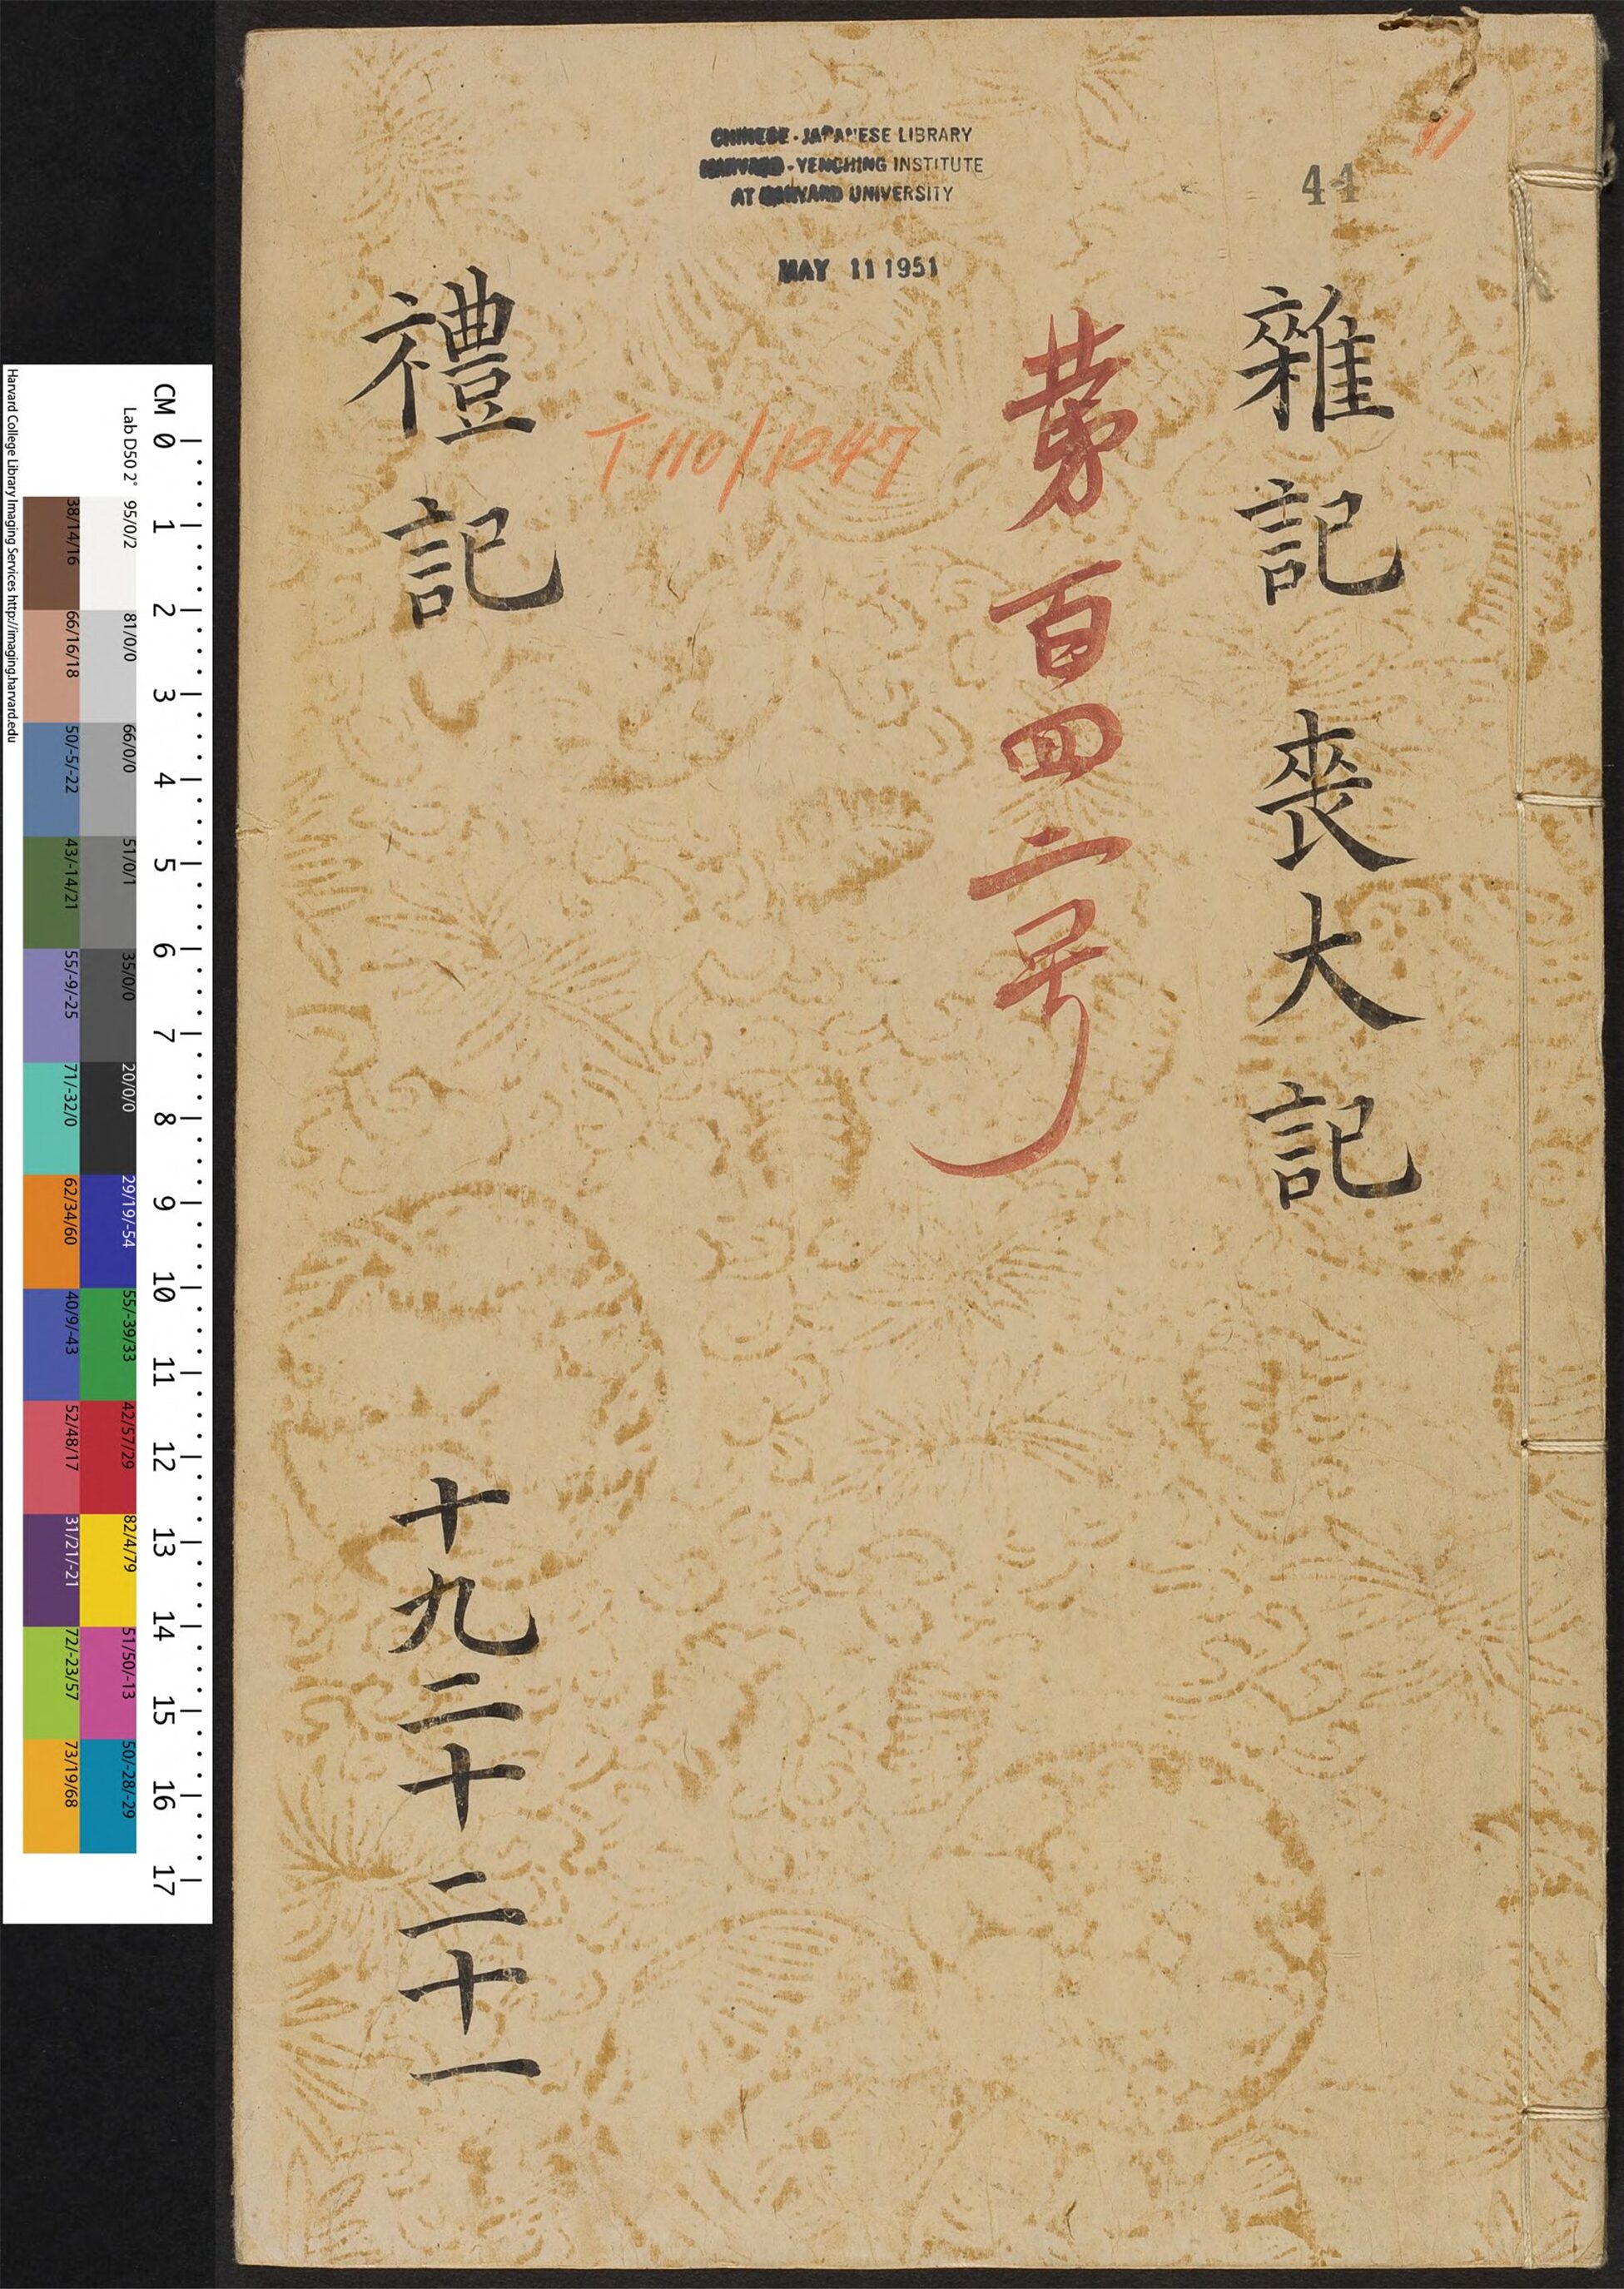 CHINESE-JAPANESE LIBRARY
HARVARD-YENCHING INSTITUTE
AT HARVARD UNIVERSITY
MAY 11 1951
44
雜記 喪大記
第百四二号
T 110/1247
禮記 十九二十 二十一
CM 0 1 2 3 4 5 6 7 8 9 10 11 12 13 14 15 16 17
Lab D50 2° 95/0/2 81/0/0 66/0/0 51/0/1 35/0/0 20/0/0 29/19/-54 55/-39/33 42/57/29 82/4/79 51/50/-13 50/-28/-29
38/14/16 66/16/18 50/-5/-22 43/-14/21 55/-9/-25 71/-32/0 62/34/60 40/9/-43 52/48/17 31/21/-21 72/-23/57 73/19/68
Harvard College Library Imaging Services http://imaging.harvard.edu